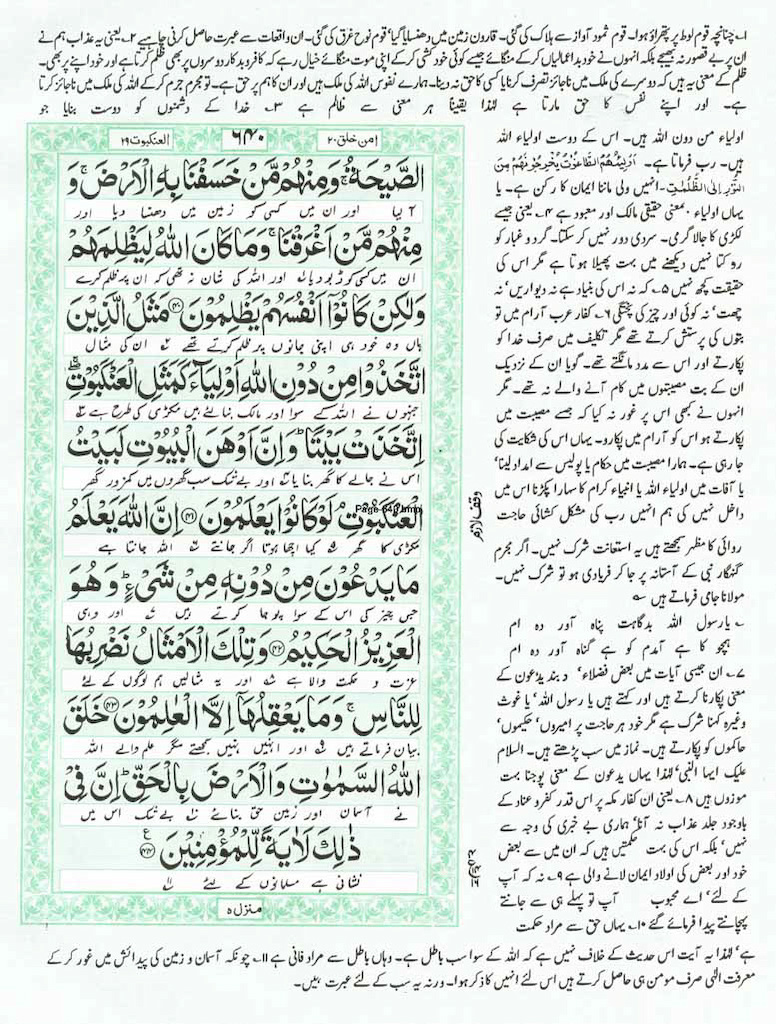 ۱۔ چنانچہ قوم لوط پر پتھراؤ ہوا۔ قوم ثمود آواز سے ہلاک کی گئی۔ قارون زمین میں دھنسایا گیا' قوم نوح غرق کی گئی۔ ان واقعات سے عبرت حاصل کرنی چاہیے ۲۔ یعنی یہ عذاب ہم نے
ان پر بے قصور نہ بھیجے بلکہ انہوں نے خود بداعمالیاں کرکے منگائے جیسے کوئی خود کشی کرکے اپنی موت منگائے خیال رہے کہ کافر و بدکار دوسروں پر بھی ظلم کرتا ہے اور خود اپنے پر بھی۔
ظلم کے معنی یہ ہیں کہ دوسرے کی ملک میں ناجائز تصرف کرنا یا کسی کا حق نہ دینا۔ ہمارے نفوس اللہ کی ملک ہیں اور ان کا ہم پر حق ہے۔ تو مجرم جرم کرکے اللہ کی ملک میں ناجائز کرتا
ہے۔ اور اپنے نفس کا حق مارتا ہے لہٰذا یقیناً ہر معنی سے ظالم ہے ۳۔ خدا کے دشمنوں کو دوست بنایا جو
اولیاء من دون اللہ ہیں۔ اس کے دوست اولیاء اللہ
ہیں۔ رب فرماتا ہے۔ اَوْلِیٰٓئُهُمُ الطَّاغُوْتُ یُخْرِجُوْنَهُمْ مِنَ
النُّوْرِ اِلَی الظُّلُمٰتِ۔ انہیں ولی ماننا ایمان کا رکن ہے۔ یا
یہاں اولیاء بمعنی حقیقی مالک اور معبود ہے ۴۔ یعنی جیسے
مکڑی کا جالا گرمی۔ سردی دور نہیں کر سکتا۔ گرد و غبار کو
روکتا نہیں دیکھنے میں بہت پھیلا ہوتا ہے مگر اس کی
حقیقت کچھ نہیں ۵۔ کہ نہ اس کی بنیاد ہے نہ دیواریں' نہ
چھت' نہ کوئی اور چیز کی پختگی ۶۔ کفار عرب آرام میں تو
بتوں کی پرستش کرتے تھے مگر تکلیف میں صرف خدا کو
پکارتے اور اس سے مدد مانگتے تھے۔ گویا ان کے نزدیک
ان کے بت مصیبتوں میں کام آنے والے نہ تھے۔ مگر
انہوں نے کبھی اس پر غور نہ کیا کہ جسے مصیبت میں
پکارتے ہو اس کو آرام میں پکارو۔ یہاں اس کی شکایت کی
جا رہی ہے۔ ہمارا مصیبت میں حکام یا پولیس سے امداد لینا'
یا آفات میں اولیاء اللہ یا انبیاء کرام کا سہارا پکڑنا اس میں
داخل نہیں کی ہم انہیں رب کی مشکل کشائی حاجت
روائی کا مظہر سمجھتے ہیں یہ استعانت شرک نہیں۔ اگر مجرم
گنہگار نبی کے آستانہ پر جا کر فریادی ہو تو شرک نہیں۔
مولانا جامی فرماتے ہیں ؎
یا رسول اللہ بدگاہت پناہ آور دہ ام
ہچو کا ہے آمدم کو ہے گناہ آور دہ ام
۷۔ ان جیسی آیات میں بعض فضلاء' دیوبند یدعون کے
معنی پکارنا کرتے ہیں اور کہتے ہیں یا رسول اللہ' یا غوث
وغیرہ کہنا شرک ہے مگر خود ہر حاجت پر امیروں' حکیموں'
حاکموں کو پکارتے ہیں۔ نماز میں سب پڑھتے ہیں۔ السلام
علیک ایہا النبی' لہٰذا یہاں یدعون کے معنی پوجنا بہت
موزوں ہیں ۸۔ یعنی ان کفار مکہ پر اس قدر کفر و عناد کے
باوجود جلد عذاب نہ آنا' ہماری بے خبری کی وجہ سے
نہیں' بلکہ اس کی بہت حکمتیں ہیں کہ ان میں سے بعض
خود اور بعض کی اولاد ایمان لانے والی ہے ۹۔ نہ کہ آپ
کے لئے' اے محبوب آپ تو پہلے ہی سے جانتے
پہچانتے پیدا فرمائے گئے ۱۰۔ یہاں حق سے مراد حکمت
وقف لازم
امن خلق ۲۰
۶۴۰
العنکبوت ۲۹
الصَّیْحَةُ ۚ وَمِنْهُمْ مَّنْ خَسَفْنَا بِهِ الْاَرْضَ ۚ وَ
آ لیا اور ان میں کسی کو زمین میں دھنسا دیا اور
مِنْهُمْ مَّنْ اَغْرَقْنَا ۚ وَمَا كَانَ اللّٰهُ لِیَظْلِمَهُمْ
ان میں کسی کو ڈبو دیا ۱ اور اللہ کی شان نہ تھی کہ ان پر ظلم کرے
وَلٰكِنْ كَانُوْۤا اَنْفُسَهُمْ یَظْلِمُوْنَ ۝۴۰ مَثَلُ الَّذِیْنَ
ہاں وہ خود ہی اپنی جانوں پر ظلم کرتے تھے ۲ ان کی مثال
اتَّخَذُوْا مِنْ دُوْنِ اللّٰهِ اَوْلِیَآءَ كَمَثَلِ الْعَنْكَبُوْتِ ۚۖ
جنہوں نے اللہ کے سوا اور مالک بنا لئے ہیں ۳ مکڑی کی طرح ہے ۴
اِتَّخَذَتْ بَیْتًا ؕ وَاِنَّ اَوْهَنَ الْبُیُوْتِ لَبَیْتُ
اس نے جالے کا گھر بنایا اور بے شک سب گھروں میں کمزور گھر
الْعَنْكَبُوْتِ ۘ لَوْ كَانُوْا یَعْلَمُوْنَ ۝۴۱ اِنَّ اللّٰهَ یَعْلَمُ
Page-640.bmp
مکڑی کا گھر ۵ کیا اچھا ہوتا اگر جانتے ۶ اللہ جانتا ہے
مَا یَدْعُوْنَ مِنْ دُوْنِهٖ مِنْ شَیْءٍ ؕ وَهُوَ
جس چیز کی اس کے سوا پوجا کرتے ہیں ۷ اور وہی
الْعَزِیْزُ الْحَكِیْمُ ۝۴۲ وَتِلْكَ الْاَمْثَالُ نَضْرِبُهَا
عزت و حکمت والا ہے ۸ اور یہ مثالیں ہم لوگوں کے لئے
لِلنَّاسِ ۚ وَمَا یَعْقِلُهَاۤ اِلَّا الْعٰلِمُوْنَ ۝۴۳ خَلَقَ
بیان فرماتے ہیں ۹ اور انہیں نہیں سمجھتے مگر علم والے اللہ
اللّٰهُ السَّمٰوٰتِ وَالْاَرْضَ بِالْحَقِّ ؕ اِنَّ فِیْ
نے آسمان اور زمین حق بنائے ۱۰ بے شک اس میں
ذٰلِكَ لَاٰیَةً لِّلْمُؤْمِنِیْنَ ۝۴۴
نشانی ہے مسلمانوں کے لئے ۱۱
منزل ۵
ہے' لہٰذا یہ آیت اس حدیث کے خلاف نہیں ہے کہ اللہ کے سوا سب باطل ہے۔ وہاں باطل سے مراد فانی ہے ۱۱۔ چونکہ آسمان و زمین کی پیدائش میں غور کر کے
معرفت الٰہی صرف مومن ہی حاصل کرتے ہیں اس لئے انہیں کا ذکر ہوا۔ ورنہ یہ سب کے لئے عبرت ہیں۔